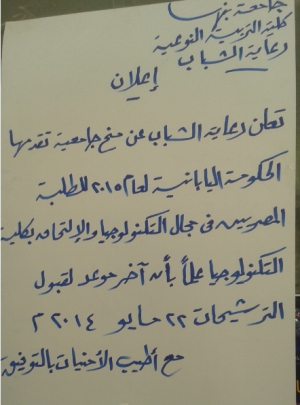 جامعة بنها
كلية التربية النوعية
رعاية الشباب
إعلان
تعلن رعاية الشباب عن منح جامعية تقدمها
الحكومة اليابانية لعام ٢٠١٥ للطلبة
المصريين فى مجال التكنولوجيا والإلتحاق بكلية
التكنولوجيا علماً بأن آخر موعد لقبول
الترشيحات ٢٢ مايو ٢٠١٤ م
مع أطيب الأمنيات بالتوفيق